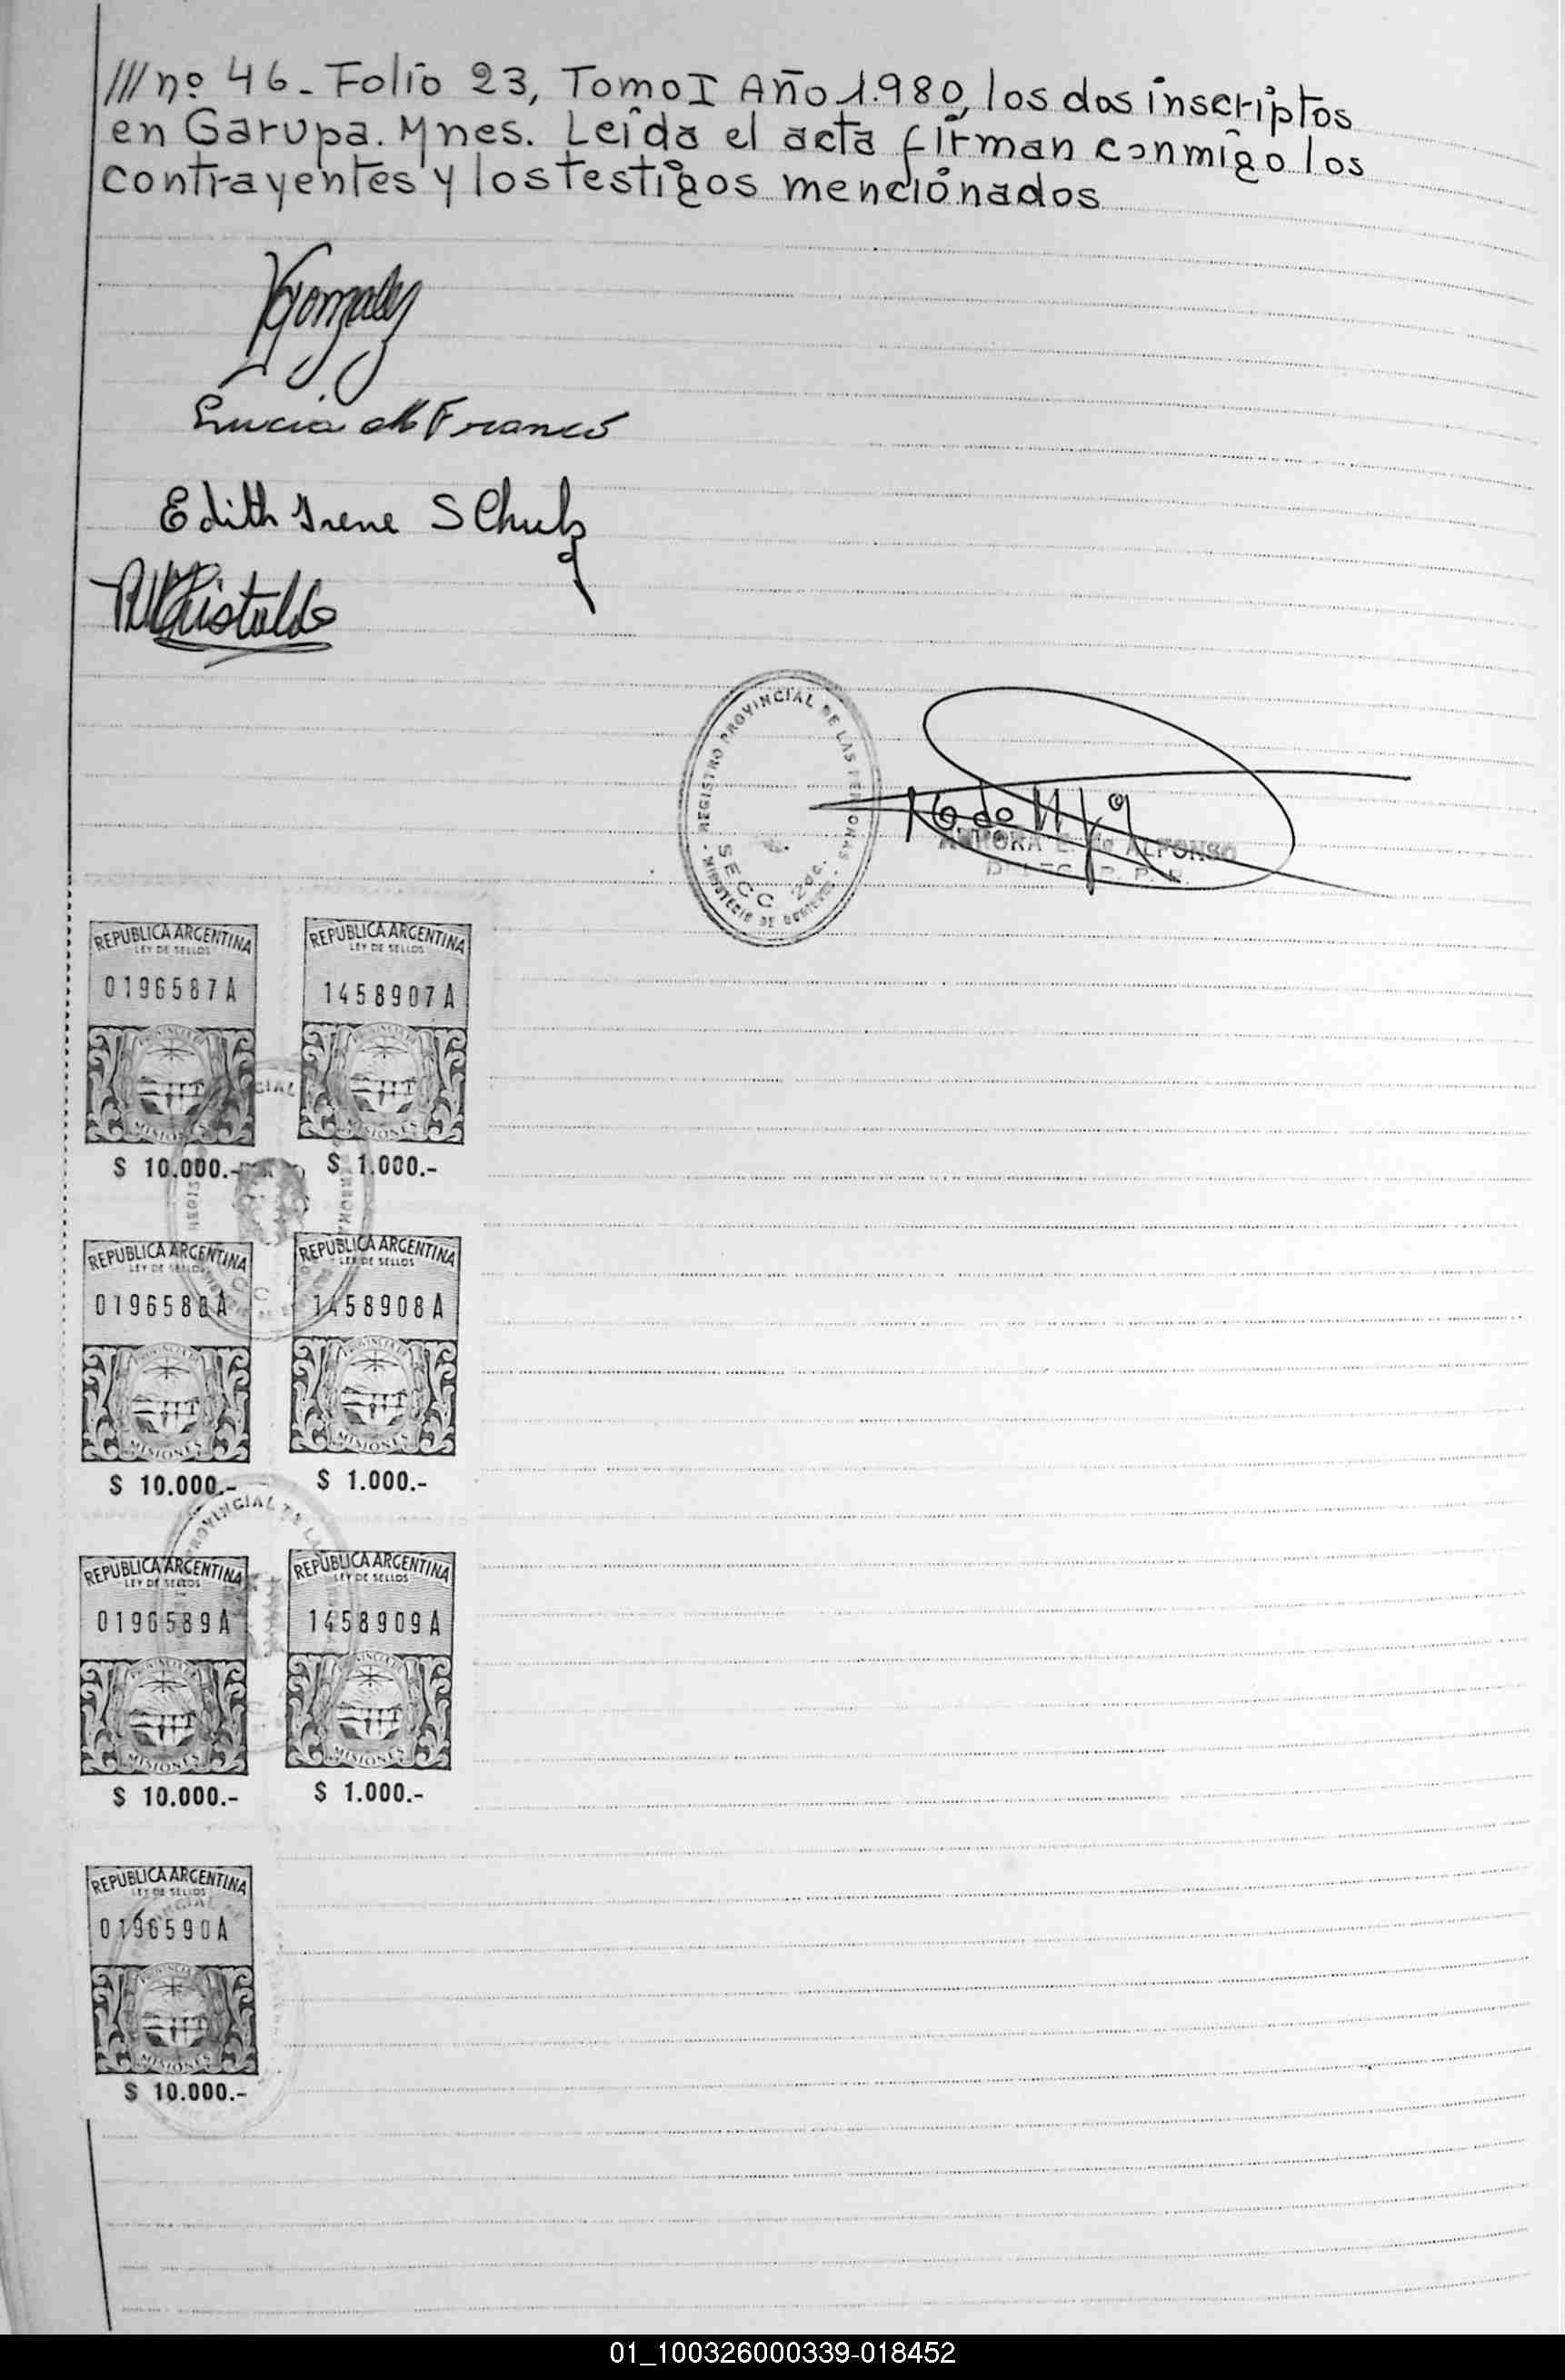 /// nº 46 - Folio 23, Tomo I Año 1.980, los dos inscriptos
en Garupa. Mnes. Leida el acta firman conmigo los
contrayentes y los testigos mencionados
Lucia M Franco
Edith Irene SChulz
REGISTRO PROVINCIAL DE LAS PERSONAS
SECC 2da.
MINISTERIO DE GOBIERNO
AURORA E. de ALFONSO
REPUBLICA ARGENTINA
LEY DE SELLOS
0196587A
MISIONES
$ 10.000.-
REPUBLICA ARGENTINA
LEY DE SELLOS
1458907A
MISIONES
$ 1.000.-
REPUBLICA ARGENTINA
LEY DE SELLOS
0196588A
MISIONES
$ 10.000.-
REPUBLICA ARGENTINA
LEY DE SELLOS
1458908A
MISIONES
$ 1.000.-
REPUBLICA ARGENTINA
LEY DE SELLOS
0196589A
MISIONES
$ 10.000.-
REPUBLICA ARGENTINA
LEY DE SELLOS
1458909A
MISIONES
$ 1.000.-
REPUBLICA ARGENTINA
LEY DE SELLOS
0196590A
MISIONES
$ 10.000.-
01_100326000339-018452